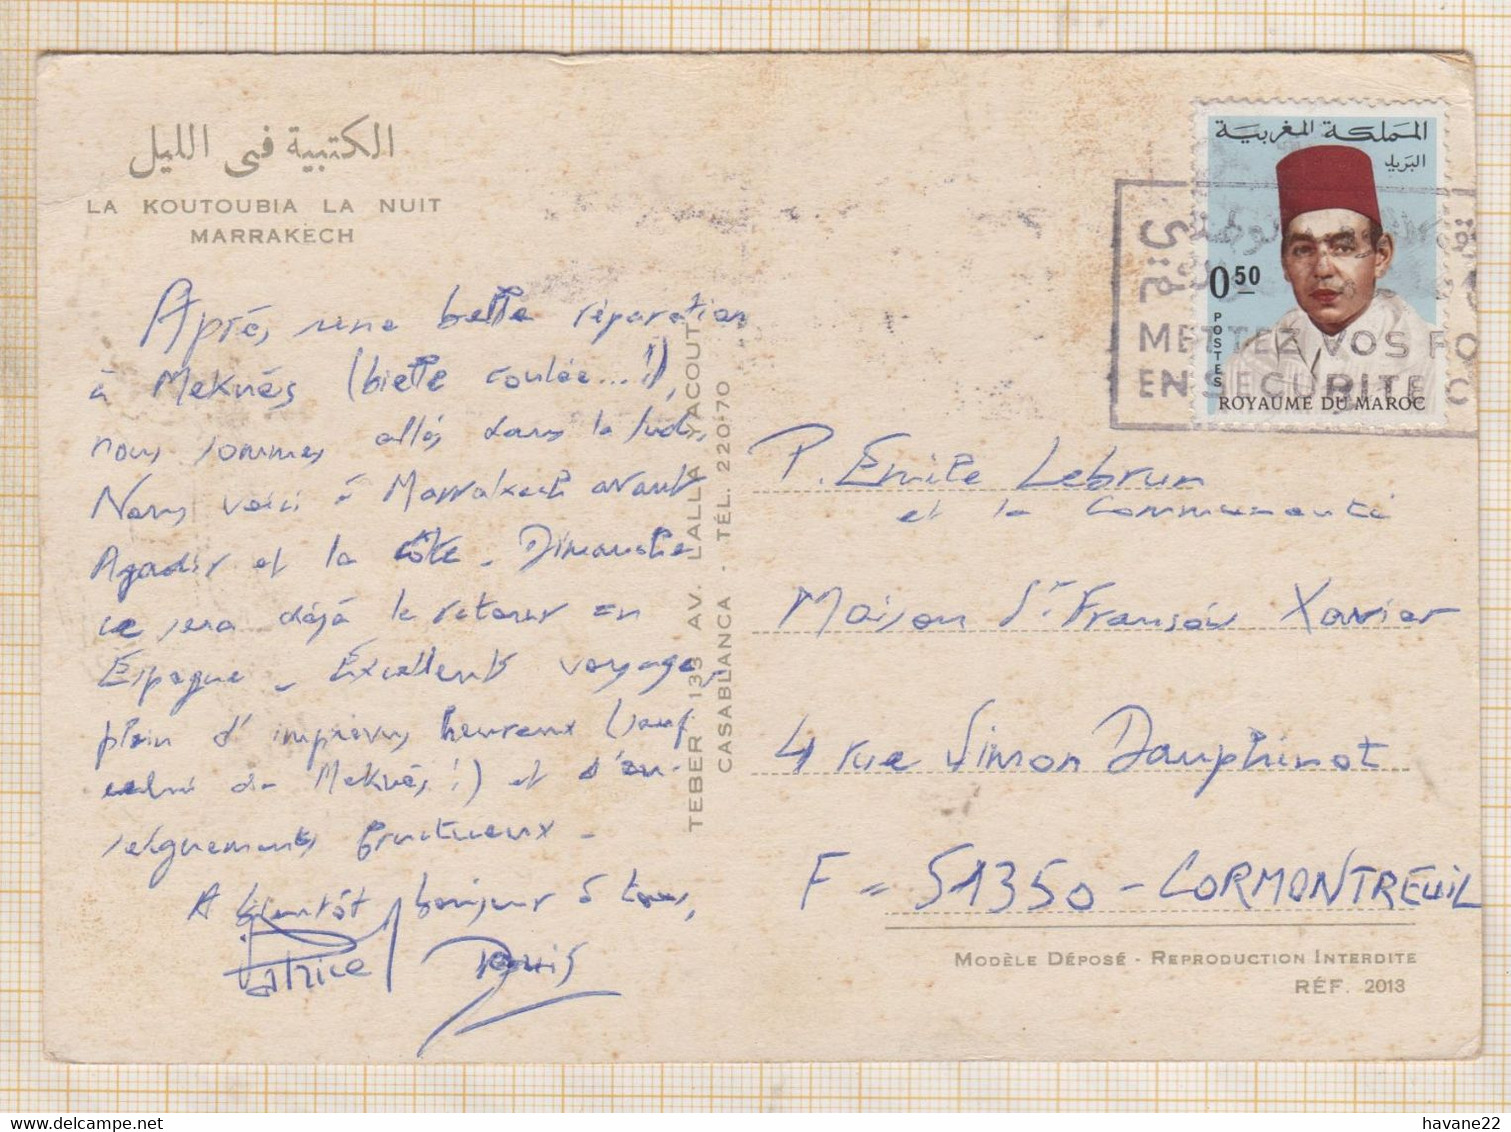 الكتبية في الليل
LA KOUTOUBIA LA NUIT
MARRAKECH
Après, une belle réparation
à Meknès (bielle coulée...!),
nous sommes allés dans le Sud.
Nous voici à Marrakech avant
Agadir et la côte. Dimanche
ce sera déjà le retour en
Espagne. Excellent voyage,
plein d'imprévus heureux (sauf
celui de Meknès!) et d'en-
seignements fructueux.
A bientôt bonjour à tous,
Patrice Denis
TEBER 133 AV. LALLA YACOUT
CASABLANCA - TÉL. 220-70
المملكة المغربية
البريد
0.50
POSTES
ROYAUME DU MAROC
METTEZ VOS FO
EN SECURITE
P. Emile Lebrun
et la Communauté
Maison St François Xavier
4 rue Simon Dauphinot
F = 51350 - CORMONTREUIL
MODÈLE DÉPOSÉ - REPRODUCTION INTERDITE
RÉF. 2013
havane22